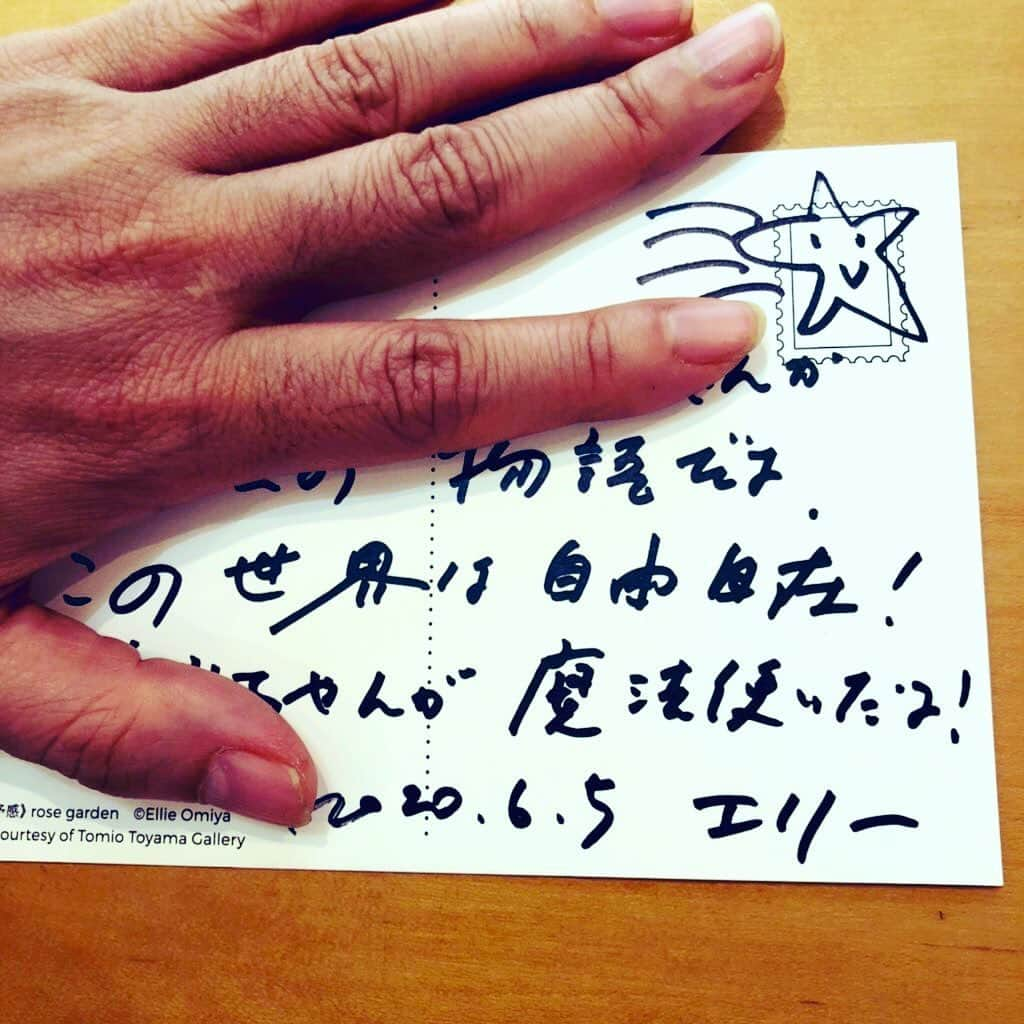 んが
この 物語だよ.
この 世界は 自由自在!
ちゃんが 魔法使いだよ!
2020.6.5 エリー
予感》 rose garden ©Ellie Omiya
ourtesy of Tomio Toyama Gallery